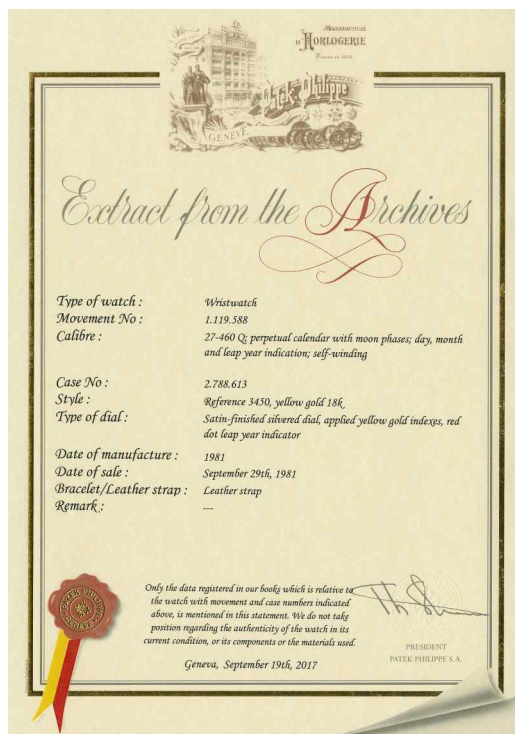 Manufacture
D'HORLOGERIE
Fondée en 1839
Patek Philippe
GENÈVE
Extract from the Archives
Type of watch : Wristwatch
Movement No : 1.119.588
Calibre : 27-460 Q; perpetual calendar with moon phases; day, month
and leap year indication; self-winding
Case No : 2.788.613
Style : Reference 3450, yellow gold 18k
Type of dial : Satin-finished silvered dial, applied yellow gold indexes, red
dot leap year indicator
Date of manufacture : 1981
Date of sale : September 29th, 1981
Bracelet/Leather strap : Leather strap
Remark : ---
Only the data registered in our books which is relative to
the watch with movement and case numbers indicated
above, is mentioned in this statement. We do not take
position regarding the authenticity of the watch in its
current condition, or its components or the materials used.
Geneva, September 19th, 2017
PRESIDENT
PATEK PHILIPPE S.A.
PATEK PHILIPPE
GENEVE